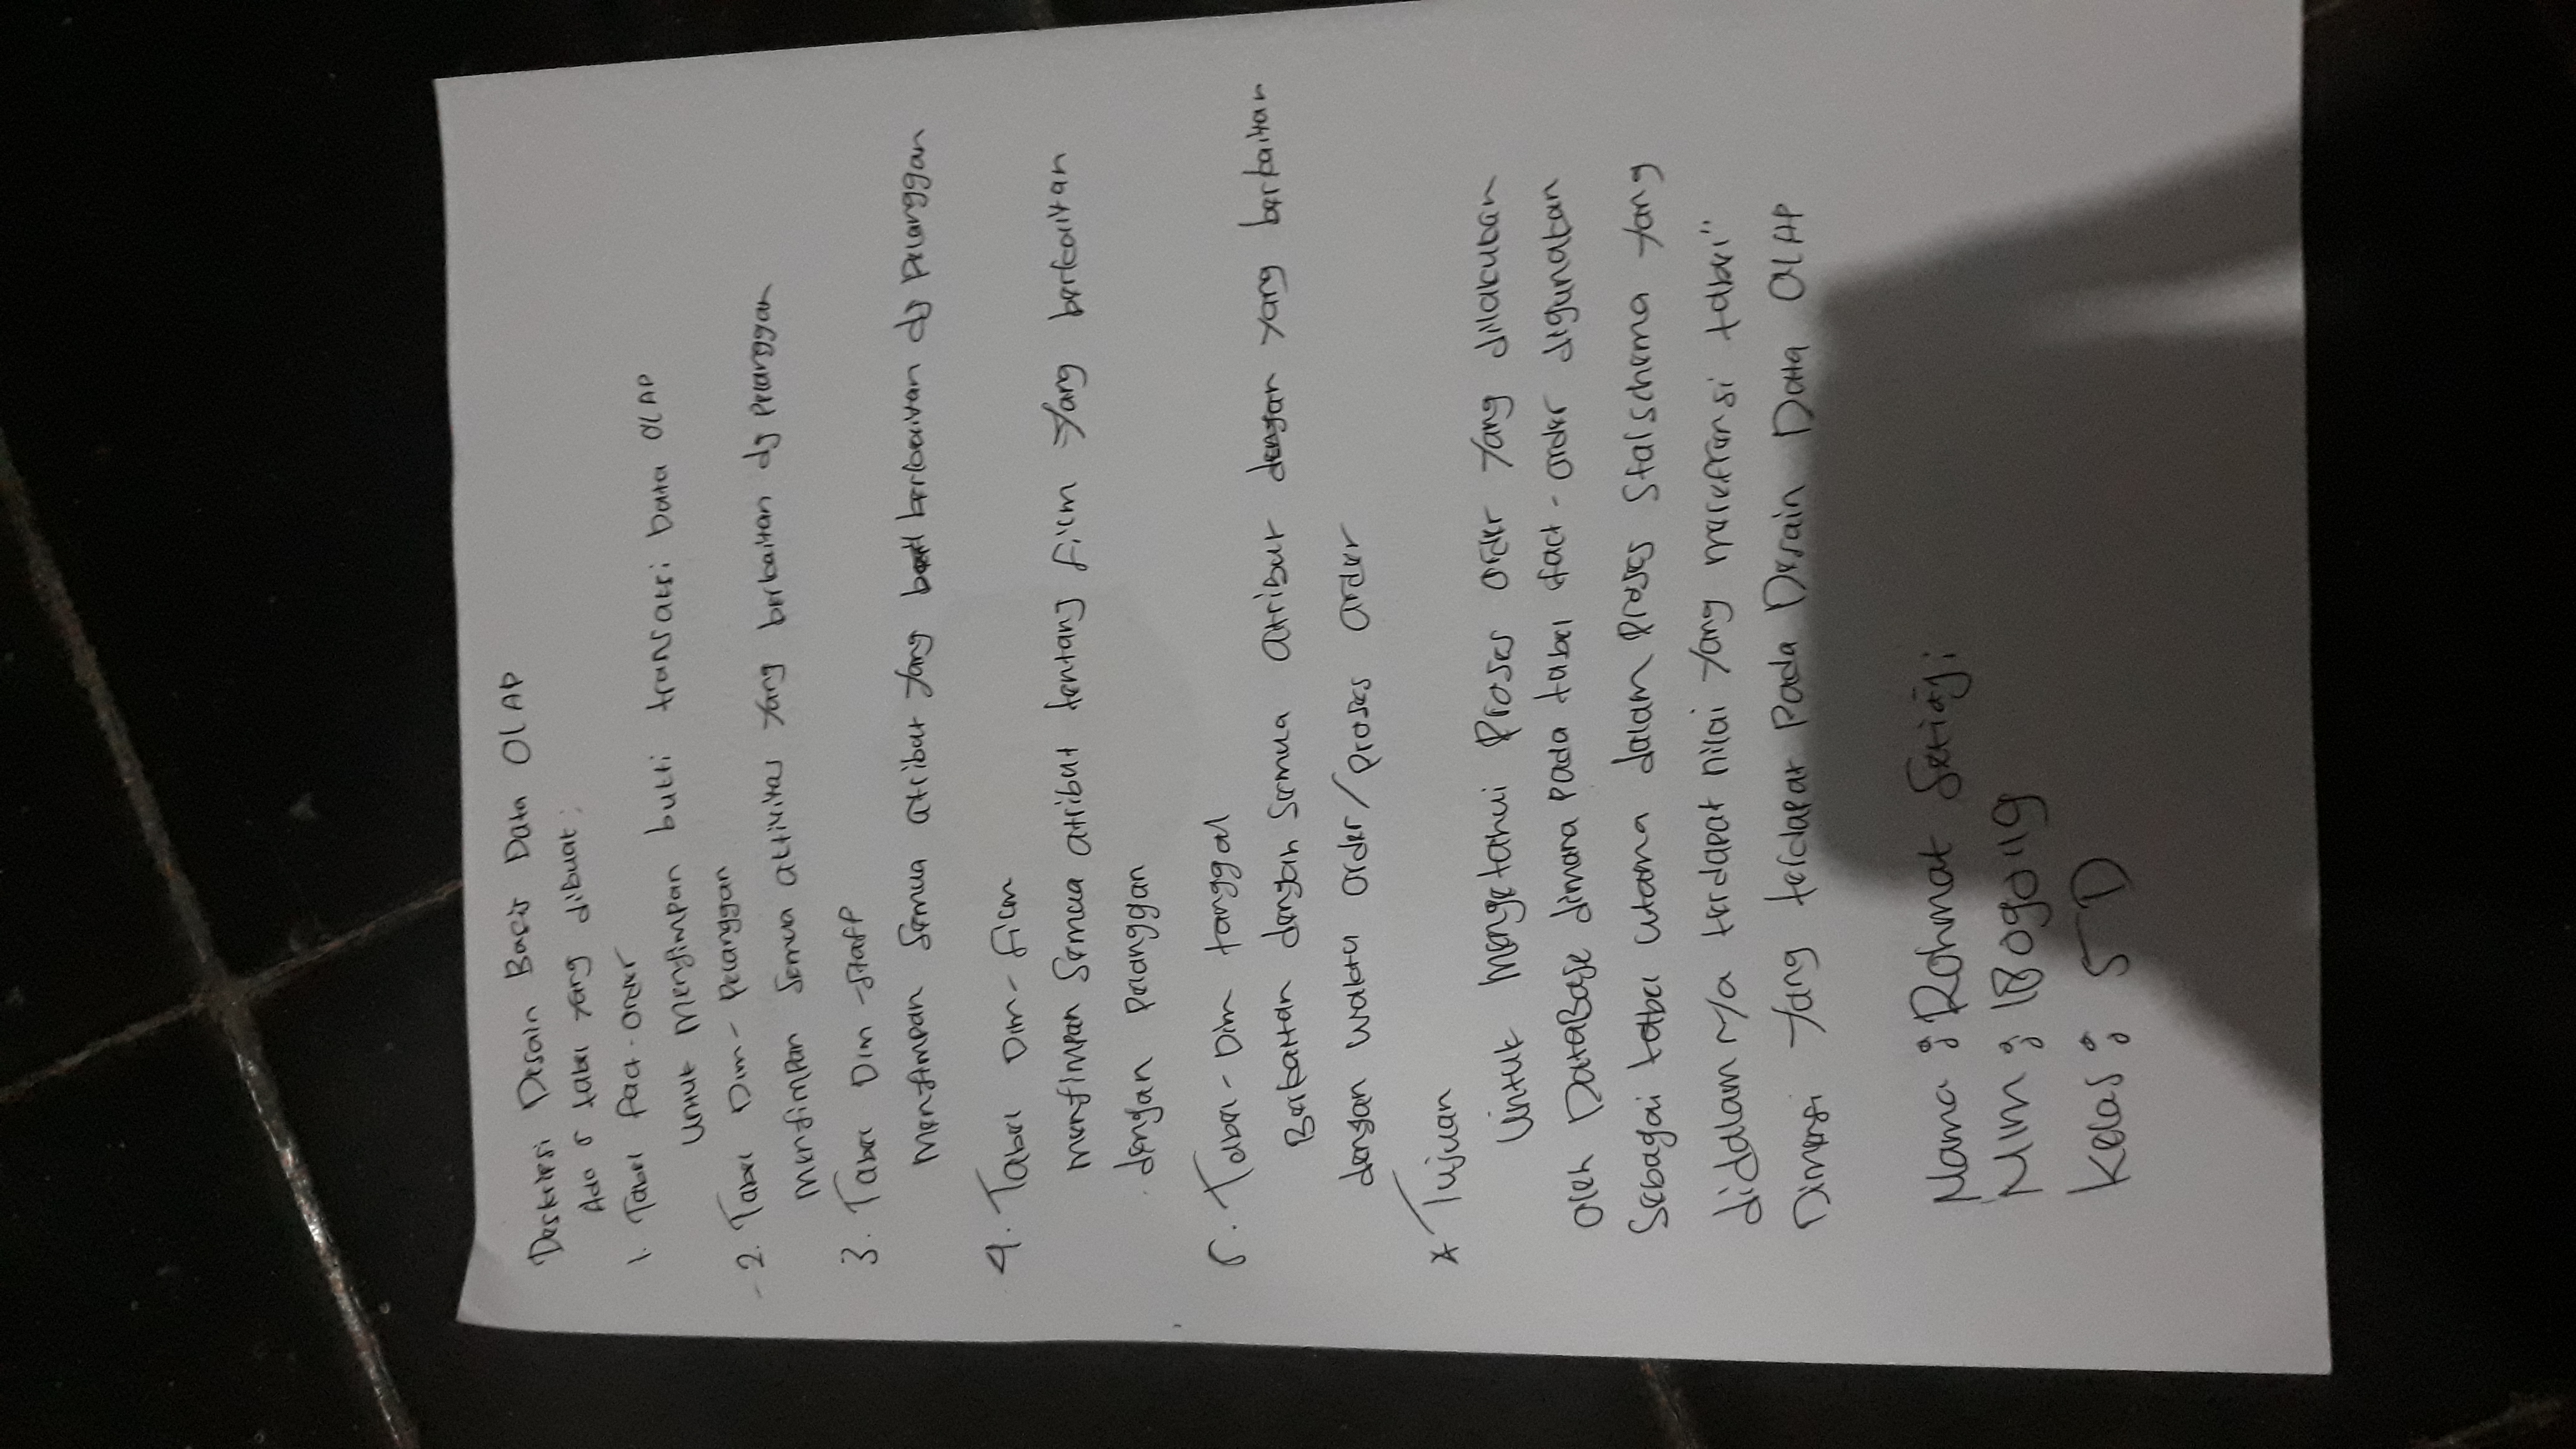 Deskripsi Desain Basis Data OLAP
Ada 5 tabel yang dibuat :
1. Tabel fact-order
Untuk Menyimpan bukti transaksi Data OLAP
2. Tabel Dim- Pelanggan
menyimpan Semua aktivitas yang berkaitan dg Pelanggan
3. Tabel Dim -Staff
Menyimpan Semua atribut yang berkaitan dg Pelanggan
4. Tabel Dim- film
menyimpan Semua atribut tentang film yang berkaitan
dengan Pelanggan
5. Tabel- Dim tanggal
Berkaitan dengan Semua atribut dengan yang berkaitan
dengan waktu order/proses order
* Tujuan
Untuk Mengetahui Proses order yang dilakukan
oleh DataBase dimana pada tabel fact - order digunakan
Sebagai tabel utama dalam Proses Starschema yang
didalamnya terdapat nilai yang merefrensi tabel"
Dimensi yang terdapat Pada Desain Data OLAP
Nama : Rohmat Setiaji
Nim : 18090119
Kelas : 5 D